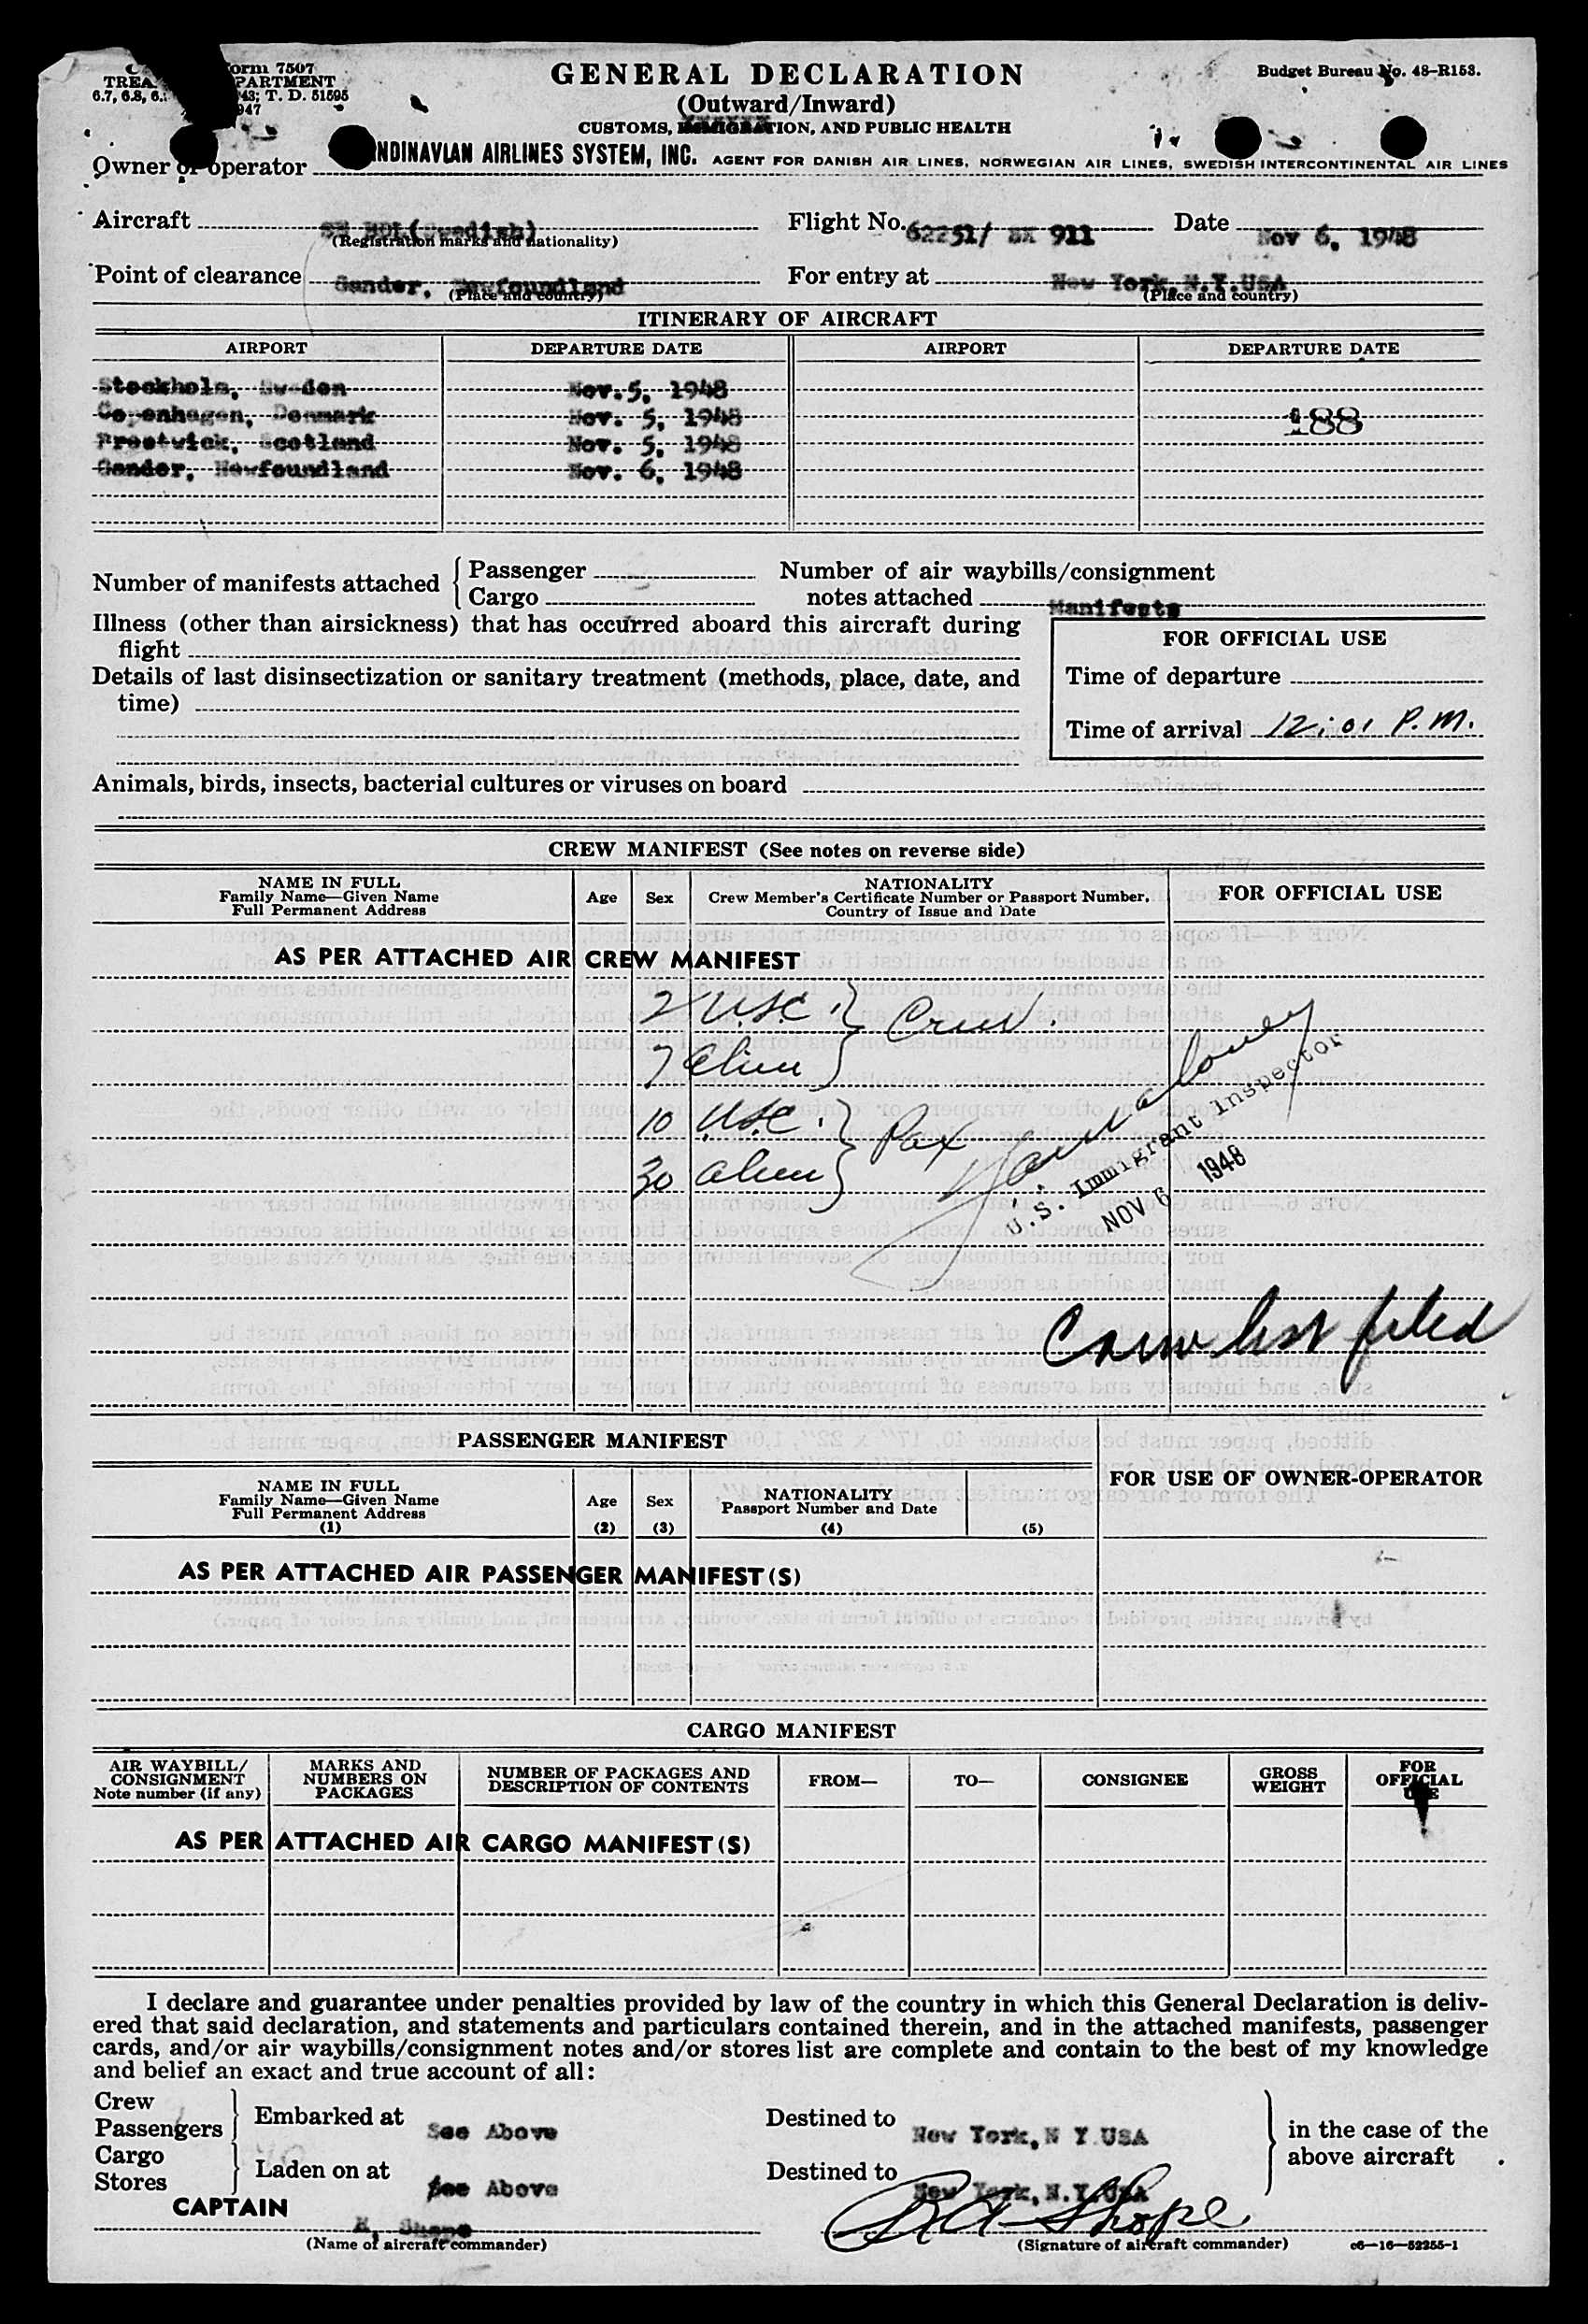 orm 7507
TREA PARTMENT
6.7, 6.8, 6. 43; T. D. 51595
947
GENERAL DECLARATION
(Outward/Inward)
CUSTOMS, IMMIGRATION, AND PUBLIC HEALTH
Budget Bureau No. 48–R153.
Owner or operator NDINAVIAN AIRLINES SYSTEM, INC. AGENT FOR DANISH AIR LINES, NORWEGIAN AIR LINES, SWEDISH INTERCONTINENTAL AIR LINES
Aircraft (Swedish) Flight No. 62251/ SK 911 Date Nov 6, 1948
(Registration marks and nationality)
Point of clearance Gander, Newfoundland For entry at New York, N.Y.USA
(Place and country) (Place and country)
ITINERARY OF AIRCRAFT
AIRPORT DEPARTURE DATE AIRPORT DEPARTURE DATE
Stockholm, Sweden Nov. 5, 1948
Copenhagen, Denmark Nov. 5, 1948 188
Prestwick, Scotland Nov. 5, 1948
Gander, Newfoundland Nov. 6, 1948
Number of manifests attached { Passenger Number of air waybills/consignment
Cargo notes attached Manifests
Illness (other than airsickness) that has occurred aboard this aircraft during
flight
FOR OFFICIAL USE
Details of last disinsectization or sanitary treatment (methods, place, date, and
time)
Time of departure
Time of arrival 12:01 P.M.
Animals, birds, insects, bacterial cultures or viruses on board
CREW MANIFEST (See notes on reverse side)
NAME IN FULL
Family Name—Given Name
Full Permanent Address
Age
Sex
NATIONALITY
Crew Member's Certificate Number or Passport Number,
Country of Issue and Date
FOR OFFICIAL USE
AS PER ATTACHED AIR CREW MANIFEST
2 U.S.C. } Crew.
7 Alien
10 U.S.C. } Pax
30 alien
U.S. Immigrant Inspector
NOV 6 1948
Crew list filed
PASSENGER MANIFEST
FOR USE OF OWNER-OPERATOR
NAME IN FULL
Family Name—Given Name
Full Permanent Address
(1)
Age
(2)
Sex
(3)
NATIONALITY
Passport Number and Date
(4)
(5)
AS PER ATTACHED AIR PASSENGER MANIFEST(S)
CARGO MANIFEST
AIR WAYBILL/
CONSIGNMENT
Note number (if any)
MARKS AND
NUMBERS ON
PACKAGES
NUMBER OF PACKAGES AND
DESCRIPTION OF CONTENTS
FROM—
TO—
CONSIGNEE
GROSS
WEIGHT
FOR
OFFICIAL
USE
AS PER ATTACHED AIR CARGO MANIFEST(S)
I declare and guarantee under penalties provided by law of the country in which this General Declaration is deliv-
ered that said declaration, and statements and particulars contained therein, and in the attached manifests, passenger
cards, and/or air waybills/consignment notes and/or stores list are complete and contain to the best of my knowledge
and belief an exact and true account of all:
Crew
Passengers } Embarked at See Above Destined to New York, N Y USA } in the case of the
Cargo
Stores } Laden on at See Above Destined to New York, N.Y.USA above aircraft
CAPTAIN
(Name of aircraft commander) (Signature of aircraft commander) c6—16—52255-1